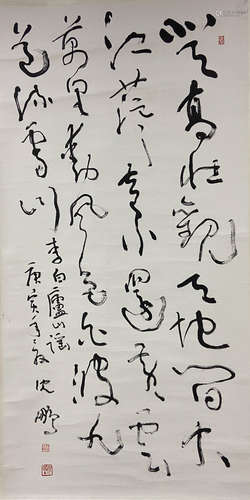 登高壯觀天地間大
江茫茫去不還黃雲
萬里動風色白波九
道流雪山
李白廬山謠
庚寅年 沈鵬